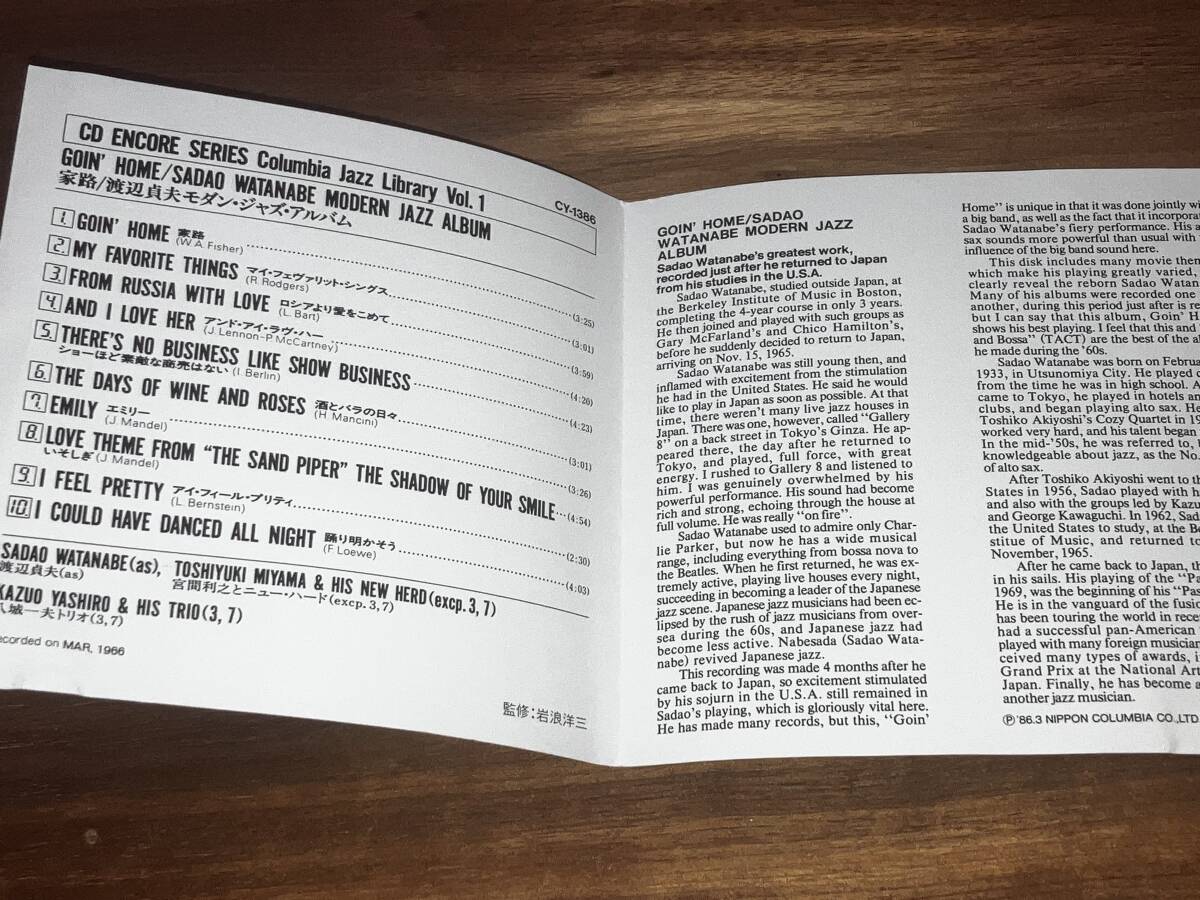 CD ENCORE SERIES Columbia Jazz Library Vol. 1
GOIN' HOME/SADAO WATANABE MODERN JAZZ ALBUM
家路/渡辺貞夫モダン・ジャズ・アルバム
CY-1386
1. GOIN' HOME 家路 (W.A. Fisher) (3:25)
2. MY FAVORITE THINGS マイ・フェヴァリット・シングス (R. Rodgers) (3:01)
3. FROM RUSSIA WITH LOVE ロシアより愛をこめて (L. Bart) (3:59)
4. AND I LOVE HER アンド・アイ・ラヴ・ハー (J. Lennon-P. McCartney) (4:20)
5. THERE'S NO BUSINESS LIKE SHOW BUSINESS (4:23)
ショーほど素敵な商売はない (I. Berlin)
6. THE DAYS OF WINE AND ROSES 酒とバラの日々 (H. Mancini) (3:01)
7. EMILY エミリー (J. Mandel) (3:26)
8. LOVE THEME FROM "THE SAND PIPER" THE SHADOW OF YOUR SMILE (4:54)
いそしぎ (J. Mandel)
9. I FEEL PRETTY アイ・フィール・プリティ (L. Bernstein) (2:30)
10. I COULD HAVE DANCED ALL NIGHT 踊り明かそう (F. Loewe) (4:03)
SADAO WATANABE(as), TOSHIYUKI MIYAMA & HIS NEW HERD(excp. 3, 7)
渡辺貞夫(as) 宮間利之とニュー・ハード(excp. 3, 7)
KAZUO YASHIRO & HIS TRIO(3, 7)
八城一夫トリオ(3, 7)
recorded on MAR, 1966
監修:岩浪洋三
GOIN' HOME/SADAO
WATANABE MODERN JAZZ
ALBUM
Sadao Watanabe's greatest work,
recorded just after he returned to Japan
from his studies in the U.S.A.
Sadao Watanabe, studied outside Japan, at
the Berkeley Institute of Music in Boston,
completing the 4-year course in only 3 years.
He then joined and played with such groups as
Gary McFarland's and Chico Hamilton's,
before he suddenly decided to return to Japan,
arriving on Nov. 15, 1965.
Sadao Watanabe was still young then, and
inflamed with excitement from the stimulation
he had in the United States. He said he would
like to play in Japan as soon as possible. At that
time, there weren't many live jazz houses in
Japan. There was one, however, called "Gallery
8" on a back street in Tokyo's Ginza. He ap-
peared there, the day after he returned to
Tokyo, and played, full force, with great
energy. I rushed to Gallery 8 and listened to
him. I was genuinely overwhelmed by his
powerful performance. His sound had become
rich and strong, echoing through the house at
full volume. He was really "on fire".
Sadao Watanabe used to admire only Char-
lie Parker, but now he has a wide musical
range, including everything from bossa nova to
the Beatles. When he first returned, he was ex-
tremely active, playing live houses every night,
succeeding in becoming a leader of the Japanese
jazz scene. Japanese jazz musicians had been ec-
lipsed by the rush of jazz musicians from over-
sea during the 60s, and Japanese jazz had
become less active. Nabesada (Sadao Wata-
nabe) revived Japanese jazz.
This recording was made 4 months after he
came back to Japan, so excitement stimulated
by his sojurn in the U.S.A. still remained in
Sadao's playing, which is gloriously vital here.
He has made many records, but this, "Goin'
Home" is unique in that it was done jointly wi
a big band, as well as the fact that it incorpora
Sadao Watanabe's fiery performance. His a
sax sounds more powerful than usual with
influence of the big band sound here.
This disk includes many movie them
which make his playing greatly varied,
clearly reveal the reborn Sadao Watan
Many of his albums were recorded one
another, during this period just after is re
but I can say that this album, Goin' H
shows his best playing. I feel that this and
and Bossa" (TACT) are the best of the al
he made during the '60s.
Sadao Watanabe was born on Februa
1933, in Utsunomiya City. He played c
from the time he was in high school. A
came to Tokyo, he played in hotels an
clubs, and began playing alto sax. He
Toshiko Akiyoshi's Cozy Quartet in 19
worked very hard, and his talent began
In the mid-'50s, he was referred to, b
knowledgeable about jazz, as the No.
of alto sax.
After Toshiko Akiyoshi went to th
States in 1956, Sadao played with h
and also with the groups led by Kazu
and George Kawaguchi. In 1962, Sad
the United States to study, at the Be
stitue of Music, and returned to
November, 1965.
After he came back to Japan, th
in his sails. His playing of the "Pa
1969, was the beginning of his "Pas
He is in the vanguard of the fusio
has been touring the world in recen
had a successful pan-American
played with many foreign musician
ceived many types of awards, i
Grand Prix at the National Art
Japan. Finally, he has become a
another jazz musician.
Ⓟ'86.3 NIPPON COLUMBIA CO.,LTD.